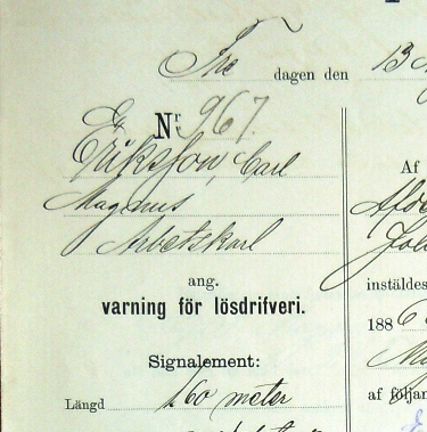 Thedagen den 13
Nr 967.
Eriksson, Carl
Magnus Af
Arbetskarl
ang. instäldes
varning för lösdrifveri.
1886
Signalement:
Längd 1,60 meter af följan